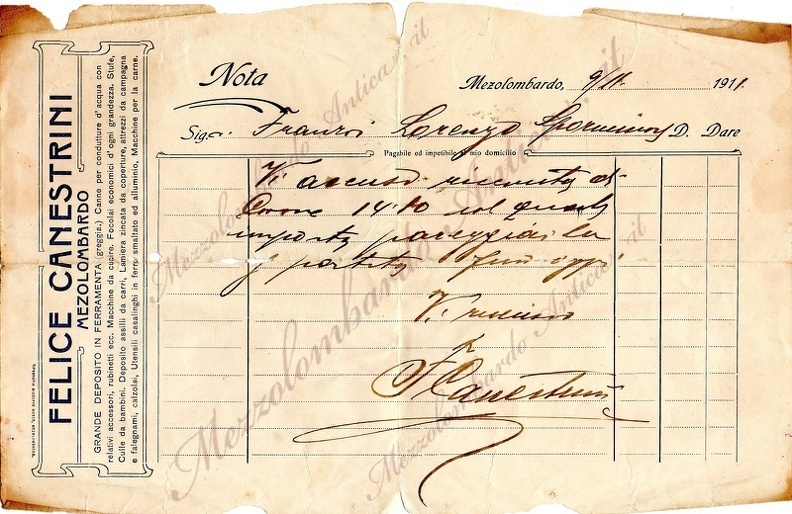 FELICE CANESTRINI
MEZOLOMBARDO
GRANDE DEPOSITO IN FERRAMENTA (greggia.) Canne per condutture d'acqua con
relativi accessori, rubinetti ecc. Macchine da cucire. Focolai economici d'ogni grandezza. Stufe,
Culle da bambini. Deposito assili da carri, Lamiera zincata da coperture, attrezzi da campagna
e falegnami, calzolai, Utensili casalinghi in ferro smaltato ed alluminio, Macchine per la carne.
Nota
Mezolombardo, 9/11. 1911.
Sig. Franzoi Lorenzo D. Dare
Pagabile ed impetibile al mio domicilio
Vi accuso ricevuta di
Corone 14.10 col quale
importo
partita
Vi riverisco
F Canestrini
Mezzolombardo Antica .it
Mezzolombardo Antica .it
Mezzolombardo Antica .it